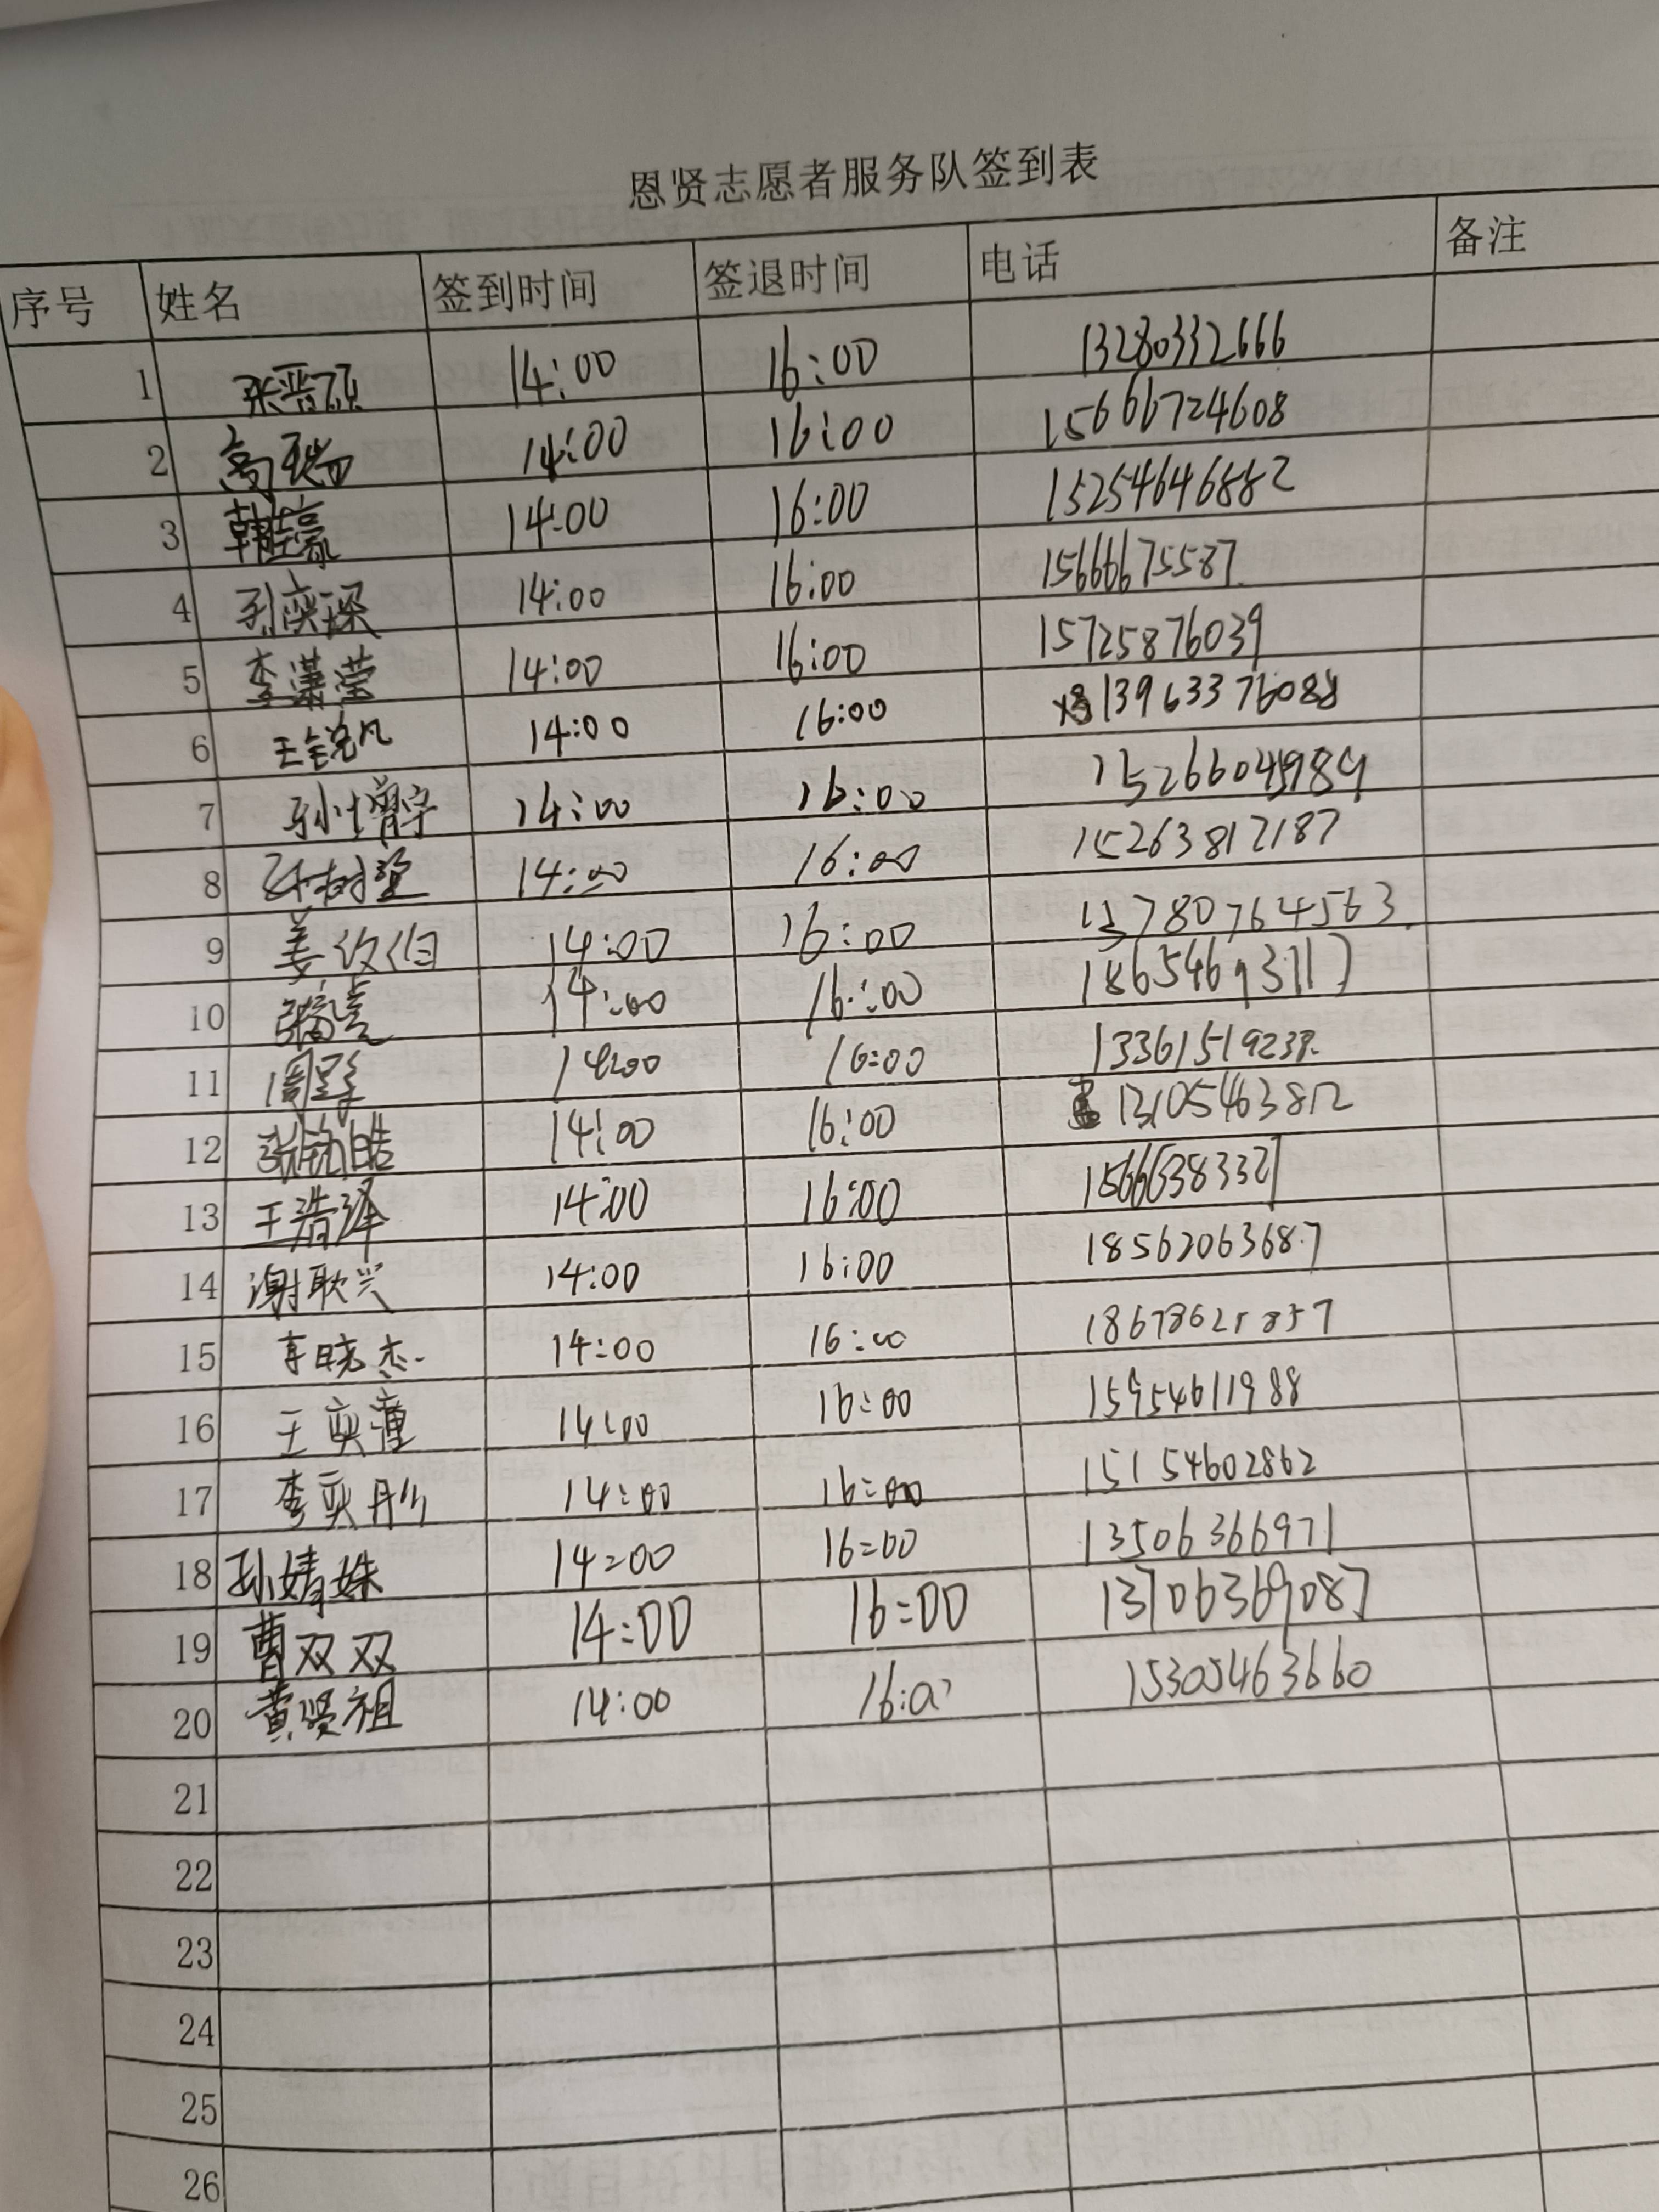 恩贤志愿者服务队签到表
序号 姓名 签到时间 签退时间 电话 备注
1 张晋硕 14:00 16:00 13280332666
2 高瑞 14:00 16:00 15666724608
3 韩 豪 14:00 16:00 15254646882
4 孙奕琛 14:00 16:00 15666675587
5 李潇莹 14:00 16:00 15725876039
6 王锐凡 14:00 16:00 13963376088
7 孙增宇 14:00 16:00
8 树 14:00 16:00 15263817187
9 姜 14:00 16:00 13780764563
10 14:00 16:00 18654693117
11 周 14:00 16:00
12 张铭皓 14:00 16:00 13105463812
13 王浩泽 14:00 16:00 15666383321
14 谢耿兴 14:00 16:00 18562063687
15 李晓杰 14:00 16:00
16 王奕潼 14:00 16:00 15954611988
17 李奕彤 14:00 16:00 15154602862
18 孙婧姝 14:00 16:00 13506366971
19 曹双双 14:00 16:00 13706369087
20 黄贤祖 14:00 16:00 15305463660
21
22
23
24
25
26